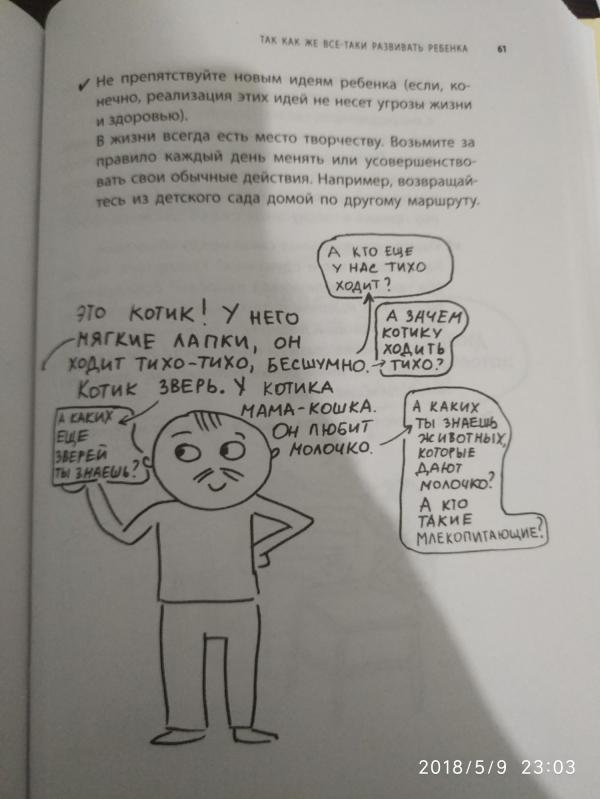 ТАК КАК ЖЕ ВСЕ-ТАКИ РАЗВИВАТЬ РЕБЕНКА 61
✓ Не препятствуйте новым идеям ребенка (если, ко-
нечно, реализация этих идей не несет угрозы жизни
и здоровью).
В жизни всегда есть место творчеству. Возьмите за
правило каждый день менять или усовершенство-
вать свои обычные действия. Например, возвращай-
тесь из детского сада домой по другому маршруту.
А КТО ЕЩЕ
У НАС ТИХО
ХОДИТ?
ЭТО КОТИК! У НЕГО
МЯГКИЕ ЛАПКИ, ОН
ХОДИТ ТИХО-ТИХО, БЕСШУМНО.
КОТИК ЗВЕРЬ. У КОТИКА
МАМА-КОШКА.
ОН ЛЮБИТ
МОЛОЧКО.
А ЗАЧЕМ
КОТИКУ
ХОДИТЬ
ТИХО?
А КАКИХ
ЕЩЕ
ЗВЕРЕЙ
ТЫ ЗНАЕШЬ?
А КАКИХ
ТЫ ЗНАЕШЬ
ЖИВОТНЫХ,
КОТОРЫЕ
ДАЮТ
МОЛОЧКО?
А КТО
ТАКИЕ
МЛЕКОПИТАЮЩИЕ?
2018/5/9 23:03